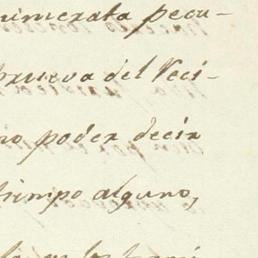 numerata pecu-
prueva del Veci-
no poder decir
tiempo alguno,